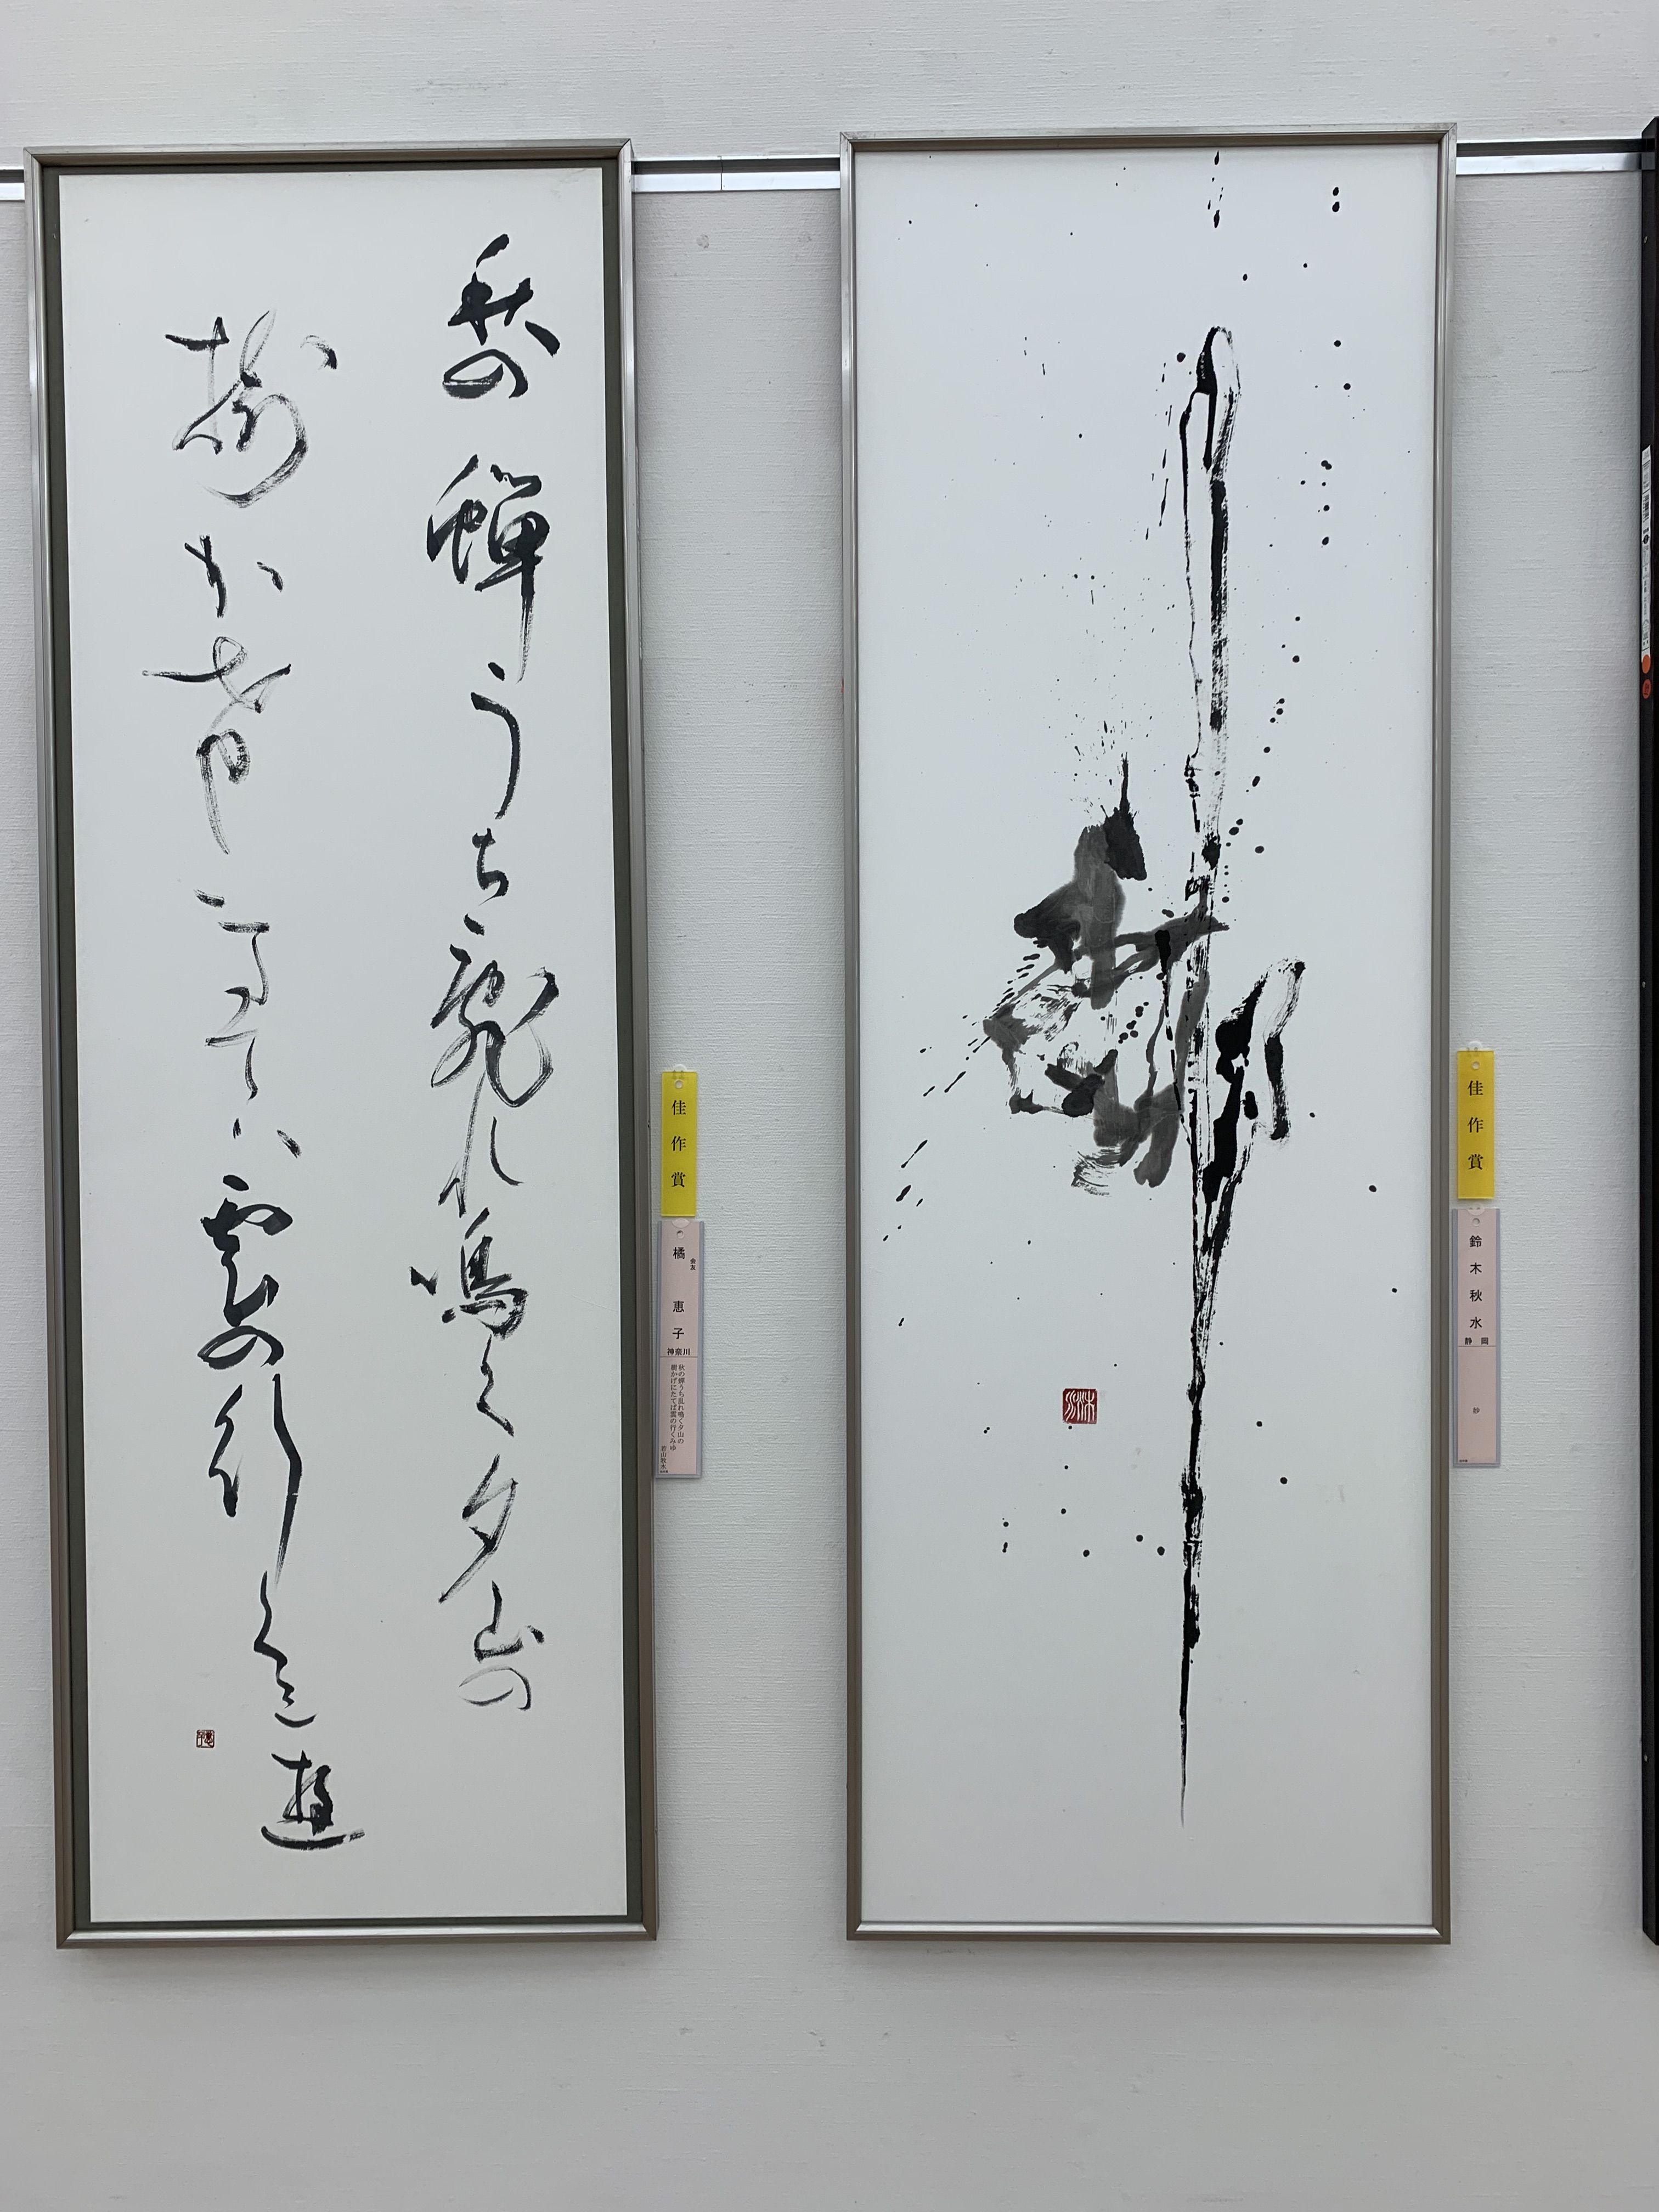 秋の蝉うち乱れ鳴く夕山の
樹かげにたてば雲の行くみゆ
佳作賞
会友
橘 恵子
神奈川
秋の蝉うち乱れ鳴く夕山の
樹かげにたてば雲の行くみゆ
若山牧水
佳作賞
鈴木秋水
静岡